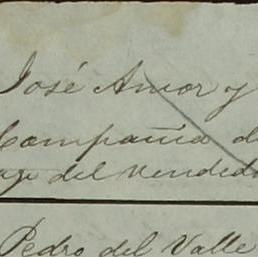 José Amor y
Compañia d
del vended
Pedro del Valle